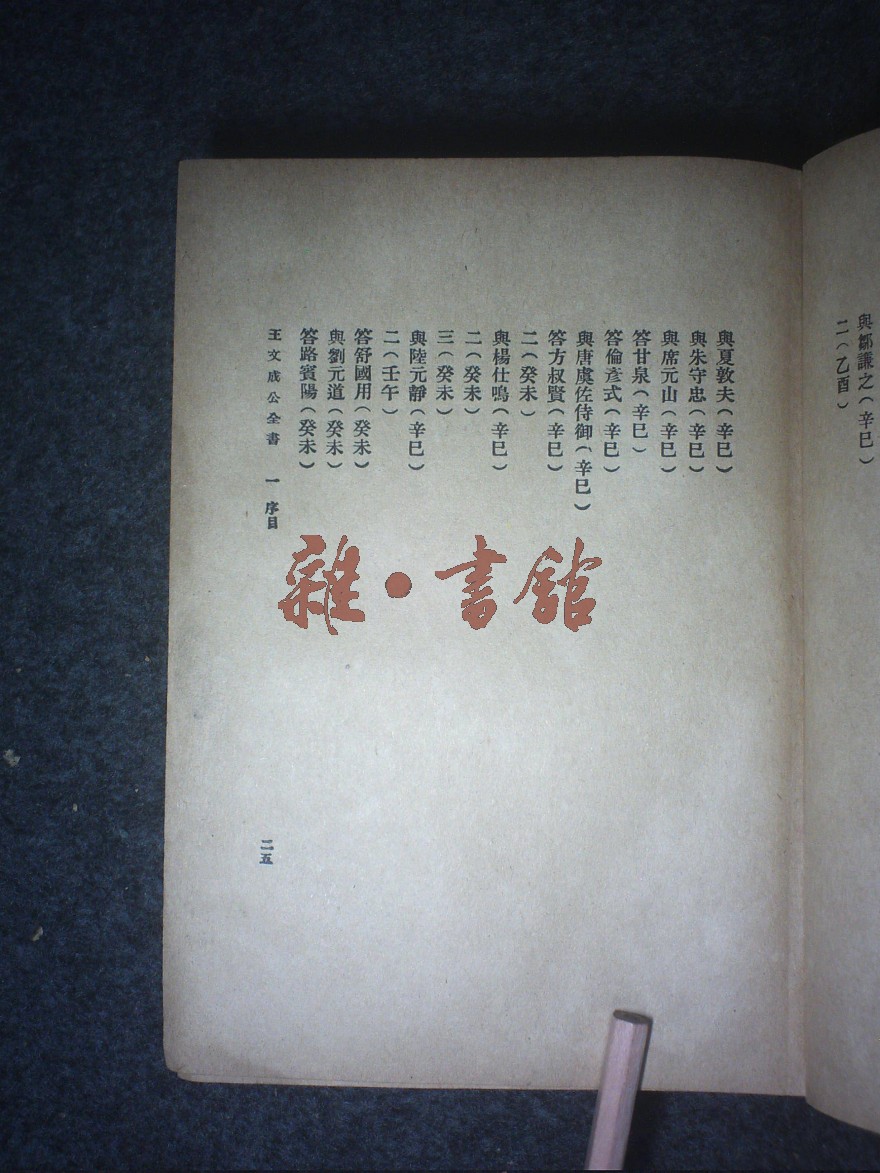 與鄒謙之(辛巳)
二(乙酉)
與夏敦夫(辛巳)
與朱守忠(辛巳)
與席元山(辛巳)
答甘泉(辛巳)
答倫彥式(辛巳)
與唐虞佐侍御(辛巳)
答方叔賢(辛巳)
二(癸未)
與楊仕鳴(辛巳)
二(癸未)
三(癸未)
與陸元靜(辛巳)
二(壬午)
答舒國用(癸未)
與劉元道(癸未)
答路賓陽(癸未)
王文成公全書 一 序目
二五
雜·書館